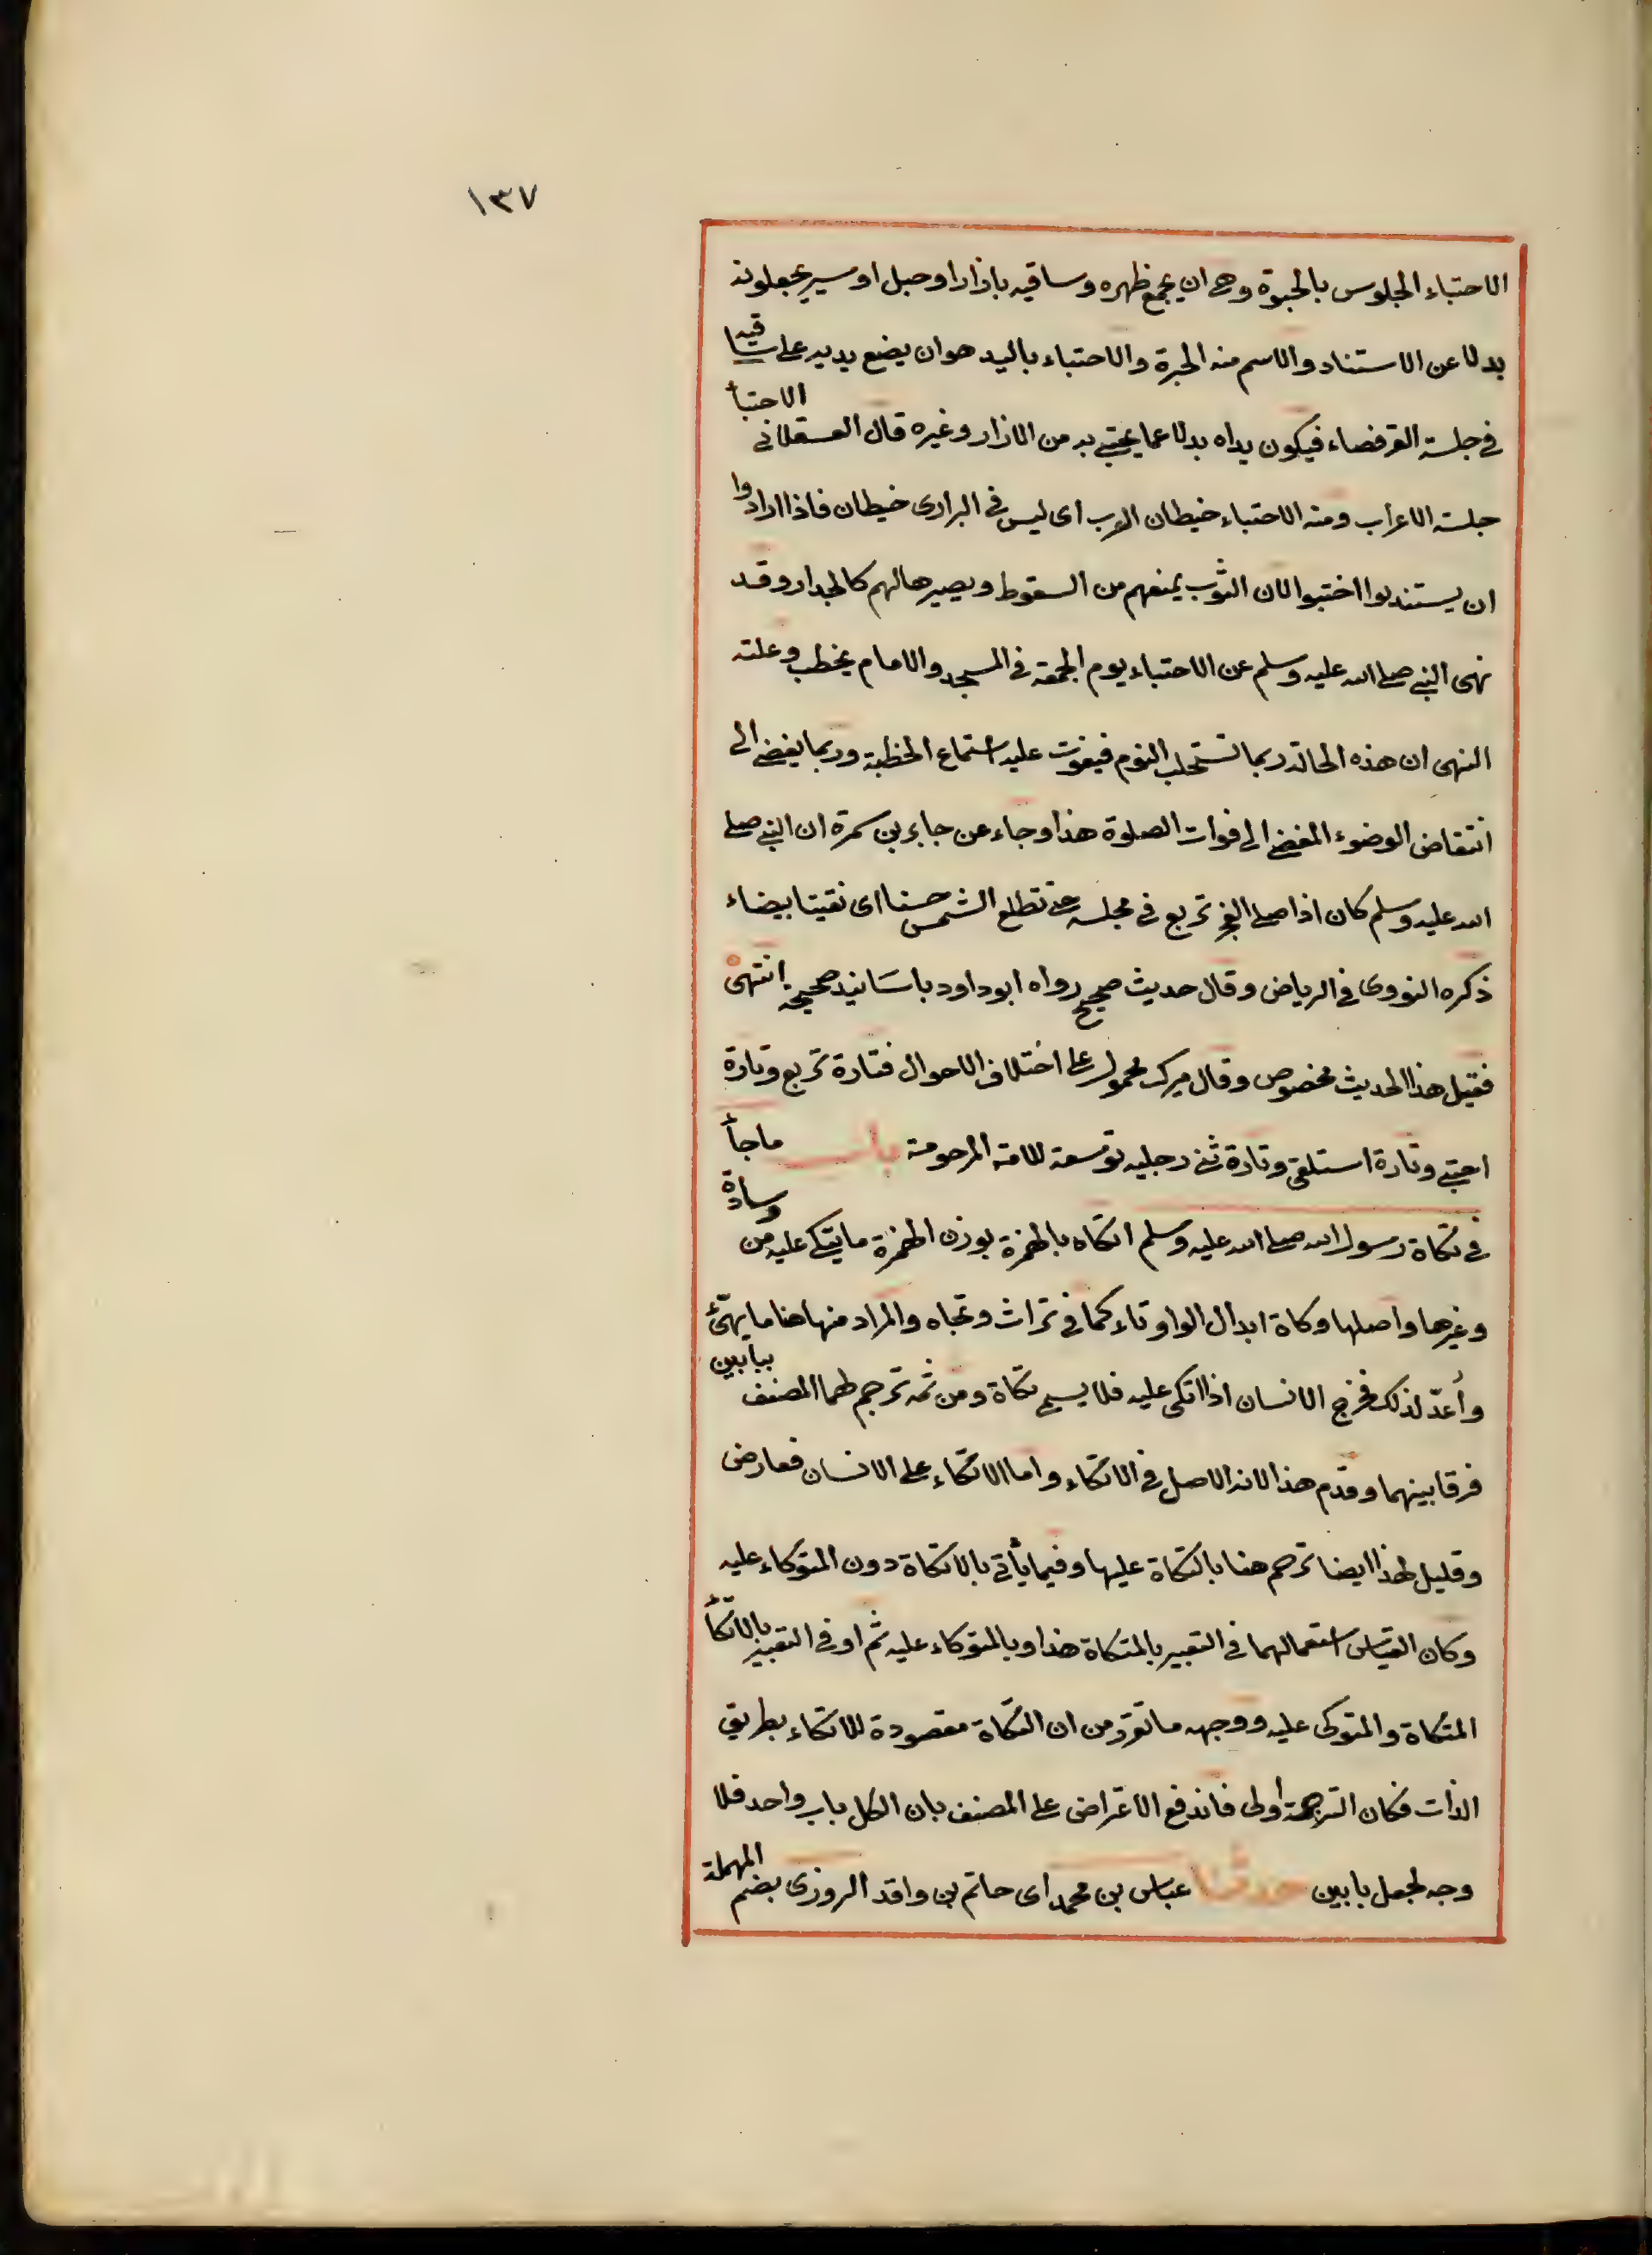 ١٣٧
الاحتباء الجلوس بالحبوة وهى ان يجمع ظهره وساقيه بازار او حبل او سير يجعلونه
بدلا عن الاستناد والاسم منه الحبرة والاحتباء باليد هو ان يضع يديه على ساقيه
فى جلسة القرفصاء فيكون يداه بدلا عما يحتبى به من الازار وغيره قال العسقلانى الاحتبأ
جلسة الاعراب ومنه الاحتباء حيطان العرب اى ليس فى البرارى حيطان فاذا ارادوا
ان يستندوا احتبوا لان الثوب يمنعهم من السقوط ويصير حالهم كالجدار وقد
نهى النبى صلى الله عليه وسلم عن الاحتباء يوم الجمعة فى المسجد والامام يخطب وعلته
النهى ان هذه الحالة ربما تستجلب النوم فيفوت عليه استماع الخطبة وربما يفضى الى
انتقاض الوضوء المفضى الى فوات الصلوة هذا وجاء عن جابر بن سمرة ان النبى صلى
الله عليه وسلم كان اذا صلى الفجر تربع فى مجلسه حتى تطلع الشمس حسنا اى نقيتا بيضاء
ذكره النووى فى الرياض وقال حديث صحيح رواه ابو داود باسانيد صحيحة انتهى
فقيل هذا الحديث مخصوص وقال ميرك محمول على اختلاف الاحوال فتارة تربع وتارة
احتبى وتارة استلقى وتارة ثنى رجليه توسعة للامة المرحومة باب ماجأ
فى تكاة رسول الله صلى الله عليه وسلم التكاه بالهمزة بوزن الهمزة ما يتكى عليه من وسادة
وغيرها واصلها وكاة ابدال الواو تاء كما فى تراث وتجاه والمراد منها هنا ما يهئ
وأعدّ لذلك فخرج الانسان اذا اتكى عليه فلا يسمى تكاة ومن ثمه ترجم لهما المصنف ببابين
فرقا بينهما وقدم هذا لانه الاصل فى الاتكاء واما الاتكاء على الانسان فعارض
وقليل لهذا ايضا ترجم هنا بالتكاة عليها وفيما يأتى بالاتكاة دون المتوكاء عليه
وكان القياس استعمالهما فى التعبير بالمتكاة هذا وبالمتوكاء عليه ثم او فى التعبير بالاتكأ
المتكاة والمتوكى عليه ووجهه ما تقرر من ان التكاة مقصودة للاتكاء بطريق
الذات فكان الترجمة اولى فاندفع الاعتراض على المصنف بان الكل باب واحد فلا
وجه لجعل بابين حدثنا عباس بن محمد اى حاتم بن واقد الروزى بضم المهملة